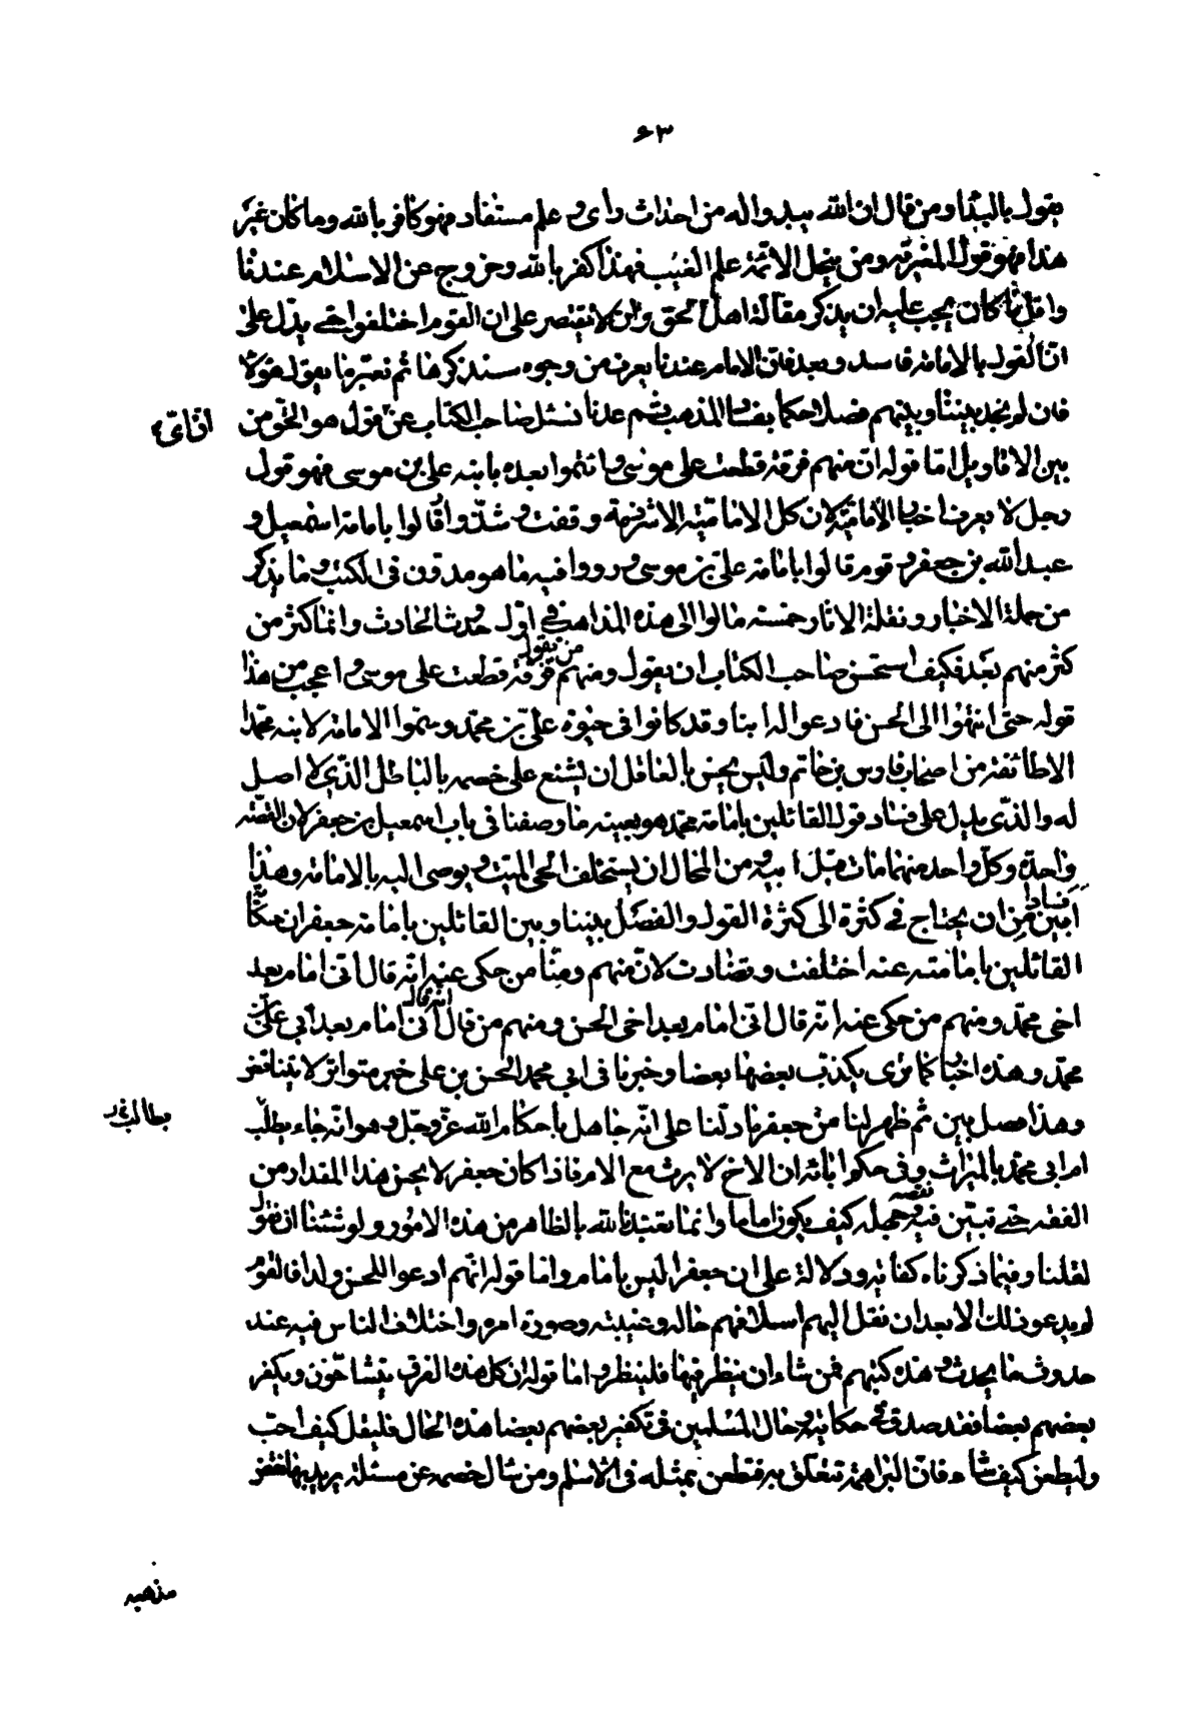 ۶۳
يقول بالبداء ومن قال ان الله يبدو له من احداث رأى و علم مستفاد فهو كافر بالله وما كان غير
هذا فهو قول المغيرية ومن ينحل الائمة علم الغيب فهذا كفر بالله وخروج عن الاسلام عندنا
واقل ما كان يجب عليه ان يذكر مقالة اهل الحق وان لا يقتصر على ان القوم اختلفوا حتى يدل على
ان القول بالامامة فاسد وبعد فان الامام عندنا يعرف من وجوه سنذكرها ثم نعتبر ما يقول هؤلاء
فان لم نجد بيننا وبينهم فصلا حكمنا بفساد المذهب ثم عدنا نسئل صاحب الكتاب عن قول هو الحق من
ان اىّ
بين الاقاويل اما قوله ان منهم فرقة قطعت على موسى و ائتموا بعده بابنه على بن موسى فهو قول
رجل لا يعرف اخبار الامامية لان كل الامامية الا شرذمة وقفت و شذّوا قالوا بامامة اسمعيل و
عبد الله بن جعفر و قوم قالوا بامامة على بن موسى و رووا فيه ما هو مدون فى الكتب و ما يذكر
من حملة الاخبار ونقلة الاثار خمسة مالوا الى هذه المذاهب فى اوّل حدوث الحادث وانما كثر من
كثر منهم بعد فكيف استحسن صاحب الكتاب ان يقول ومنهم من يقول فرقة قطعت على موسى و اعجب من هذا
قوله حتى انتهوا الى الحسن فادعوا له ابنا وقد كانوا فى حيوة على بن محمد وسموا الامامة لابنه محمد
الا طائفة من اصحاب فارس بن حاتم وليس يحسن بالعاقل ان يشنع على خصمه بالباطل الذى لا اصل
له والذى يدل على فساد قول القائلين بامامة محمد هو بعينه ما وصفنا فى باب اسمعيل بن جعفر لان القصة
واحدة وكل واحد منهما مات قبل ابيه و من المحال ان يستخلف الحى الميت و يوصى اليه بالامامة وهذا
ابين فسادا من ان يحتاج فى كثرة الى كثرة القول والفصل بيننا وبين القائلين بامامة جعفر ان حكاية
القائلين بامامته عنه اختلفت وتضادت لان منهم ومنا من حكى عنه انه قال انى امام بعد
اخى محمد ومنهم من حكى عنه انه قال انى امام بعد اخى الحسن ومنهم من قال انه قال انى امام بعد ابى على بن
محمد وهذه اخبار كما ترى يكذب بعضها بعضا وخبرنا فى ابى محمد الحسن بن على خبر متواتر لا يتناقض
وهذا فصل بين ثم ظهر لنا من جعفر ما دلنا على انه جاهل باحكام الله عز وجل و هو انه جاء يطلب
يطالب خ ر
ام ابى محمد بالميراث و فى حكم ابائه ان الاخ لا يرث مع الام فاذا كان جعفر لا يحسن هذا المقدار من
الفقه حتى تبين فيه نقصه و جهله كيف يكون اماما وانما تعبدنا الله بالظاهر من هذه الامور ولو شئنا ان نقول
لقلنا وفيما ذكرناه كفاية ودلالة على ان جعفرا ليس بامام واما قوله انهم ادعوا للحسن ولدا فالقوم
لم يدعوا ذلك الا بعد ان نقل اليهم اسلافهم حاله وغيبته وصورة امره واختلاف الناس فيه عند
حدوث ما يحدث و هذه كتبهم فمن شاء ان ينظر فيها فلينظر و اما قوله ان كل هذه الفرق يتشاحّون ويكفر
بعضهم بعضا فقد صدق فى حكايته و حال المسلمين فى تكفير بعضهم بعضا هذه الحال فليقل كيف احب
وليطعن كيف شاء فان البراهمة تتعلق به فتطعن بمثله فى الاسلام ومن سال خصمه عن مسئلة يريد بها نقض
مذهبه